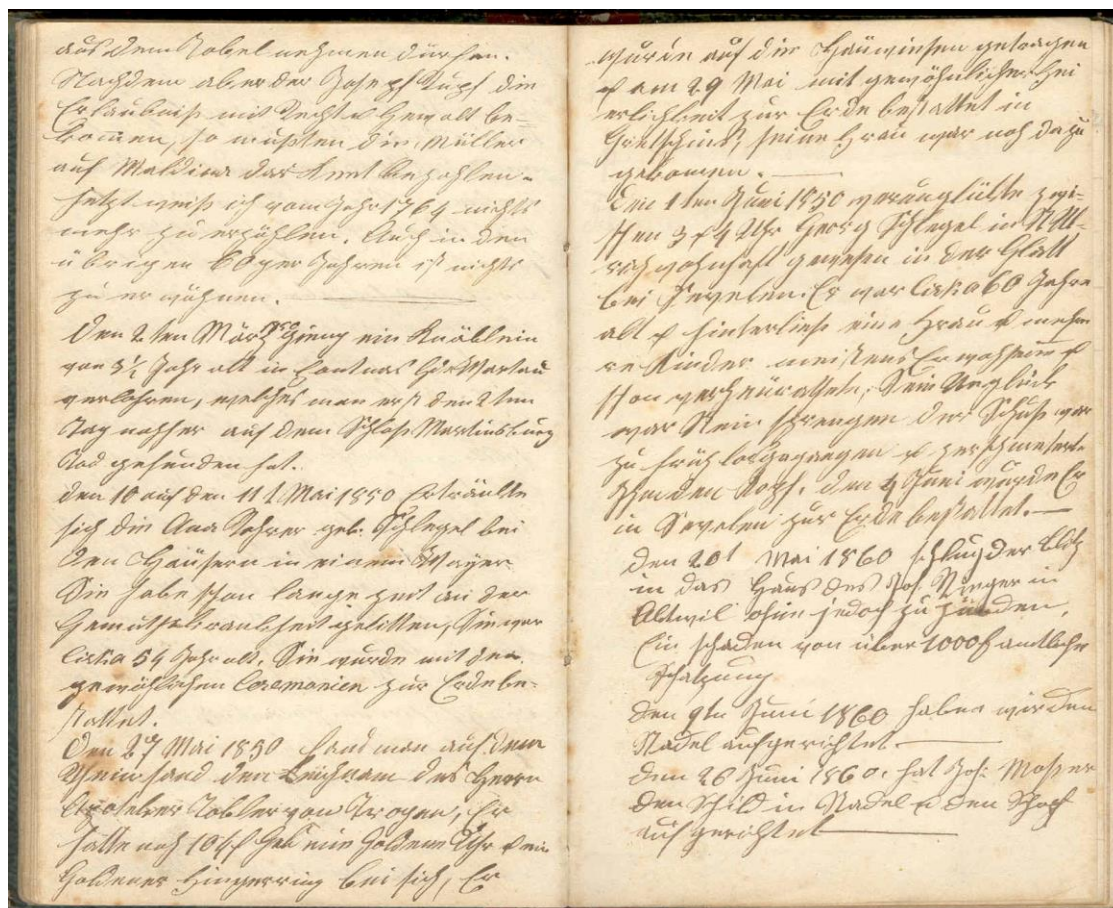 aus dem Tobel nehmen dürfen.
Nachdem aber der Joseph Kupf die
Erlaubniß mit Recht u Gewalt be-
komen, so mußten die Müller
auf Maldina das Amt bezahlen.
Jetzt weiß ich vom Jahr 1764 nichts
mehr zu erzählen. Auch in den
übrigen 60ger Jahren ist nichts
zu erwähnen.
Den 2ten März gieng ein Knäblein
von 3½ Jahr alt in Fontnas Gd Wartau
verlohren, welches man erst den 2ten
Tag nachher auf dem Schloß Martinsburg
Tod gefunden hat.
Den 10 auf den 11t Mai 1850 Ertränkte
sich die Ana Rohrer geb. Schlegel bei
den Häusern in einem Wayer
Sie habe schon lange zeit an der
Gemüthskrankheit gelitten, Sie war
Cirka 54 Jahr alt. Sie wurde mit den
gewöhlichen Ceremonien zur Erde be-
stattet.
Den 27 Mai 1850 fand man auf dem
Rheinsand den Leichnam des Herrn
Apotheker Tobler von Trogen, Er
hatte noch 104 f Geld eine Goldene Uhr u ein
Goldener Fingerring bei sich, Er
wurde auf die Häuwiesen getragen
u am 29 Mai mit gewöhnlicher Fei
erlichkeit zur Erde bestattet in
Gretschins, seine Frau war noch dazu
gekomen.
Den 1ten Juni 1850 verunglükte zwi-
schen 3 u 4 Uhr Georg Schlegel in
wohnhaft gewesen in der Glatt
bei Sevelen. Er war Cirka 60 Jahre
alt u hinterließ eine Frau u mehre
re Kinder meistens Erwachsene u
schon verheürathete, Sein Unglück
war Stein sprengen der Schuß war
zu früh losgegangen u zerschmeterte
Ihm den Kopf, den 4 Juni wurde Er
in Sevelen zur Erde bestattet.
Den 20t Mai 1860 schlug der Blitz
in das Haus des Joh. in
Altwil ohne jedoch zu zünden,
Ein schaden von über 1000 f amtliche
Schatzung
Den 9tn Juni 1860 haben wir den
Stadel aufgerichtet
Den 26 Juni 1860. hat Joh: Moßer
den Schild in Stadel u den Schopf
aufgerichtet